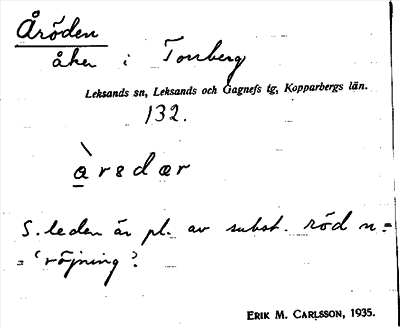 Åröden
åker i Tonberg
Leksands sn, Leksands och Gagnefs tg, Kopparbergs län.
132.
S. leden är pl. av subst. röd n. =
= 'röjning'?
ERIK M. CARLSSON, 1935.